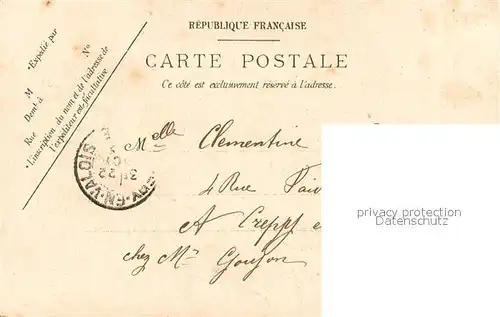 RÉPUBLIQUE FRANÇAISE
CARTE POSTALE
Ce côté est exclusivement réservé à l'adresse.
*Expédié par
M
Demt à
Rue Nº
*L'inscription du nom et de l'adresse de
l'expéditeur est facultative
Melle Clementine
4 Rue
A
chez Mr Goujon
EN-VALOIS
3E 22
privacy protection
Datenschutz